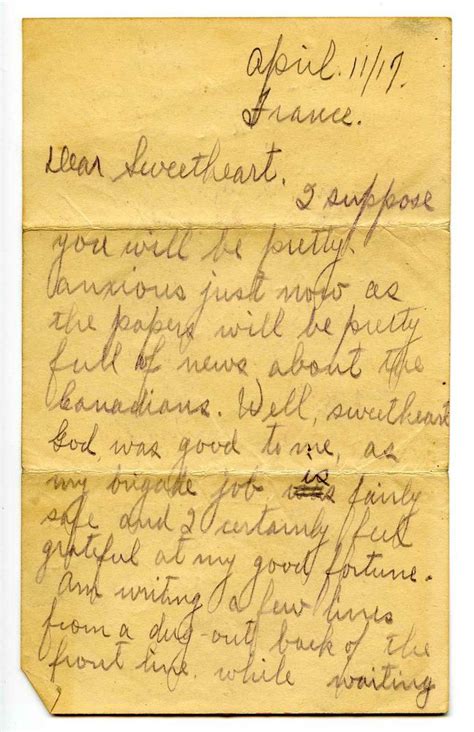 April. 11/17.
France.
Dear Sweetheart.
I suppose
you will be pretty.
anxious just now as
the papers will be pretty
full of news about the
Canadians. Well, sweetheart
God, was good to me, as
my brigade job, was is fairly
safe and I certainly feel
grateful at my good fortune.
Am writing a few lines
from a dug-out back of the
front line. while waiting